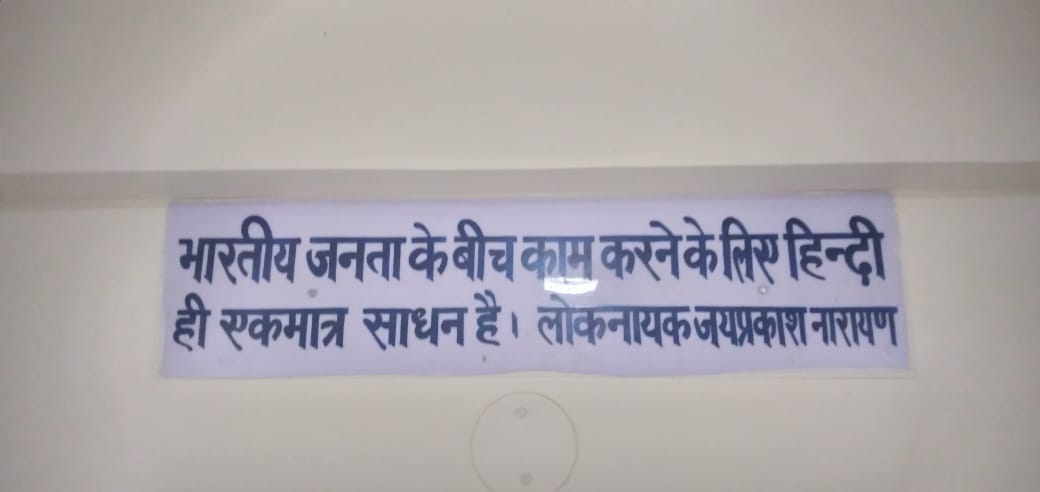 भारतीय जनता के बीच काम करने के लिए हिन्दी
ही एकमात्र साधन है। लोकनायक जयप्रकाश नारायण